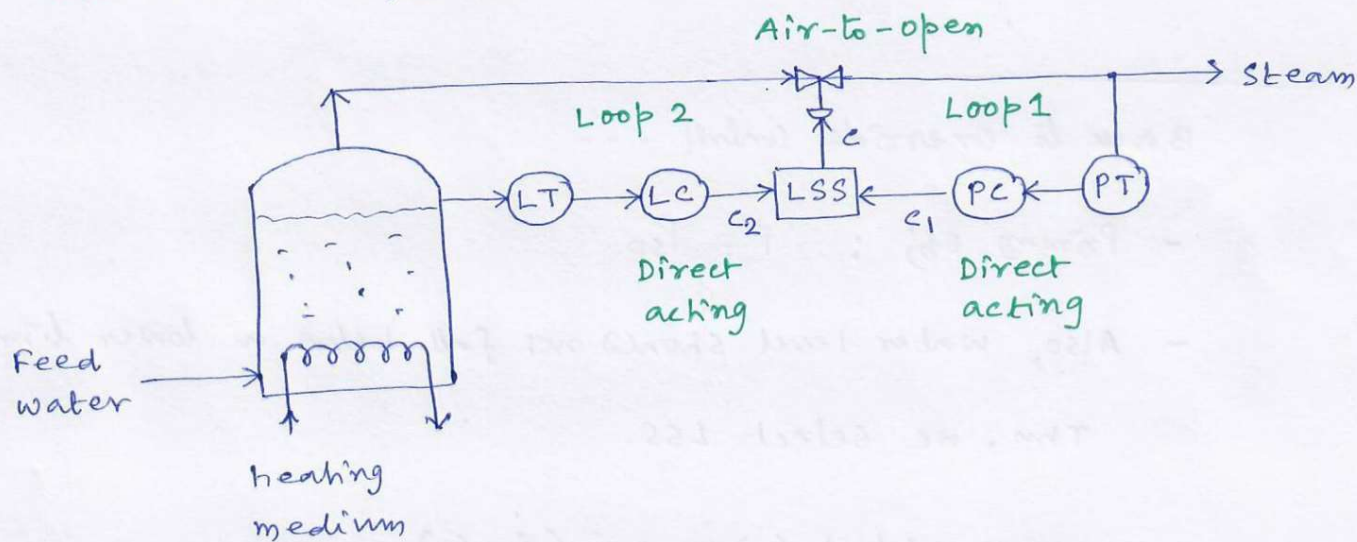 Air-to-open
Steam
Loop 2
Loop 1
c
LT
LC
LSS
PC
PT
c₂
c₁
Direct
acting
Direct
acting
Feed
water
heating
medium